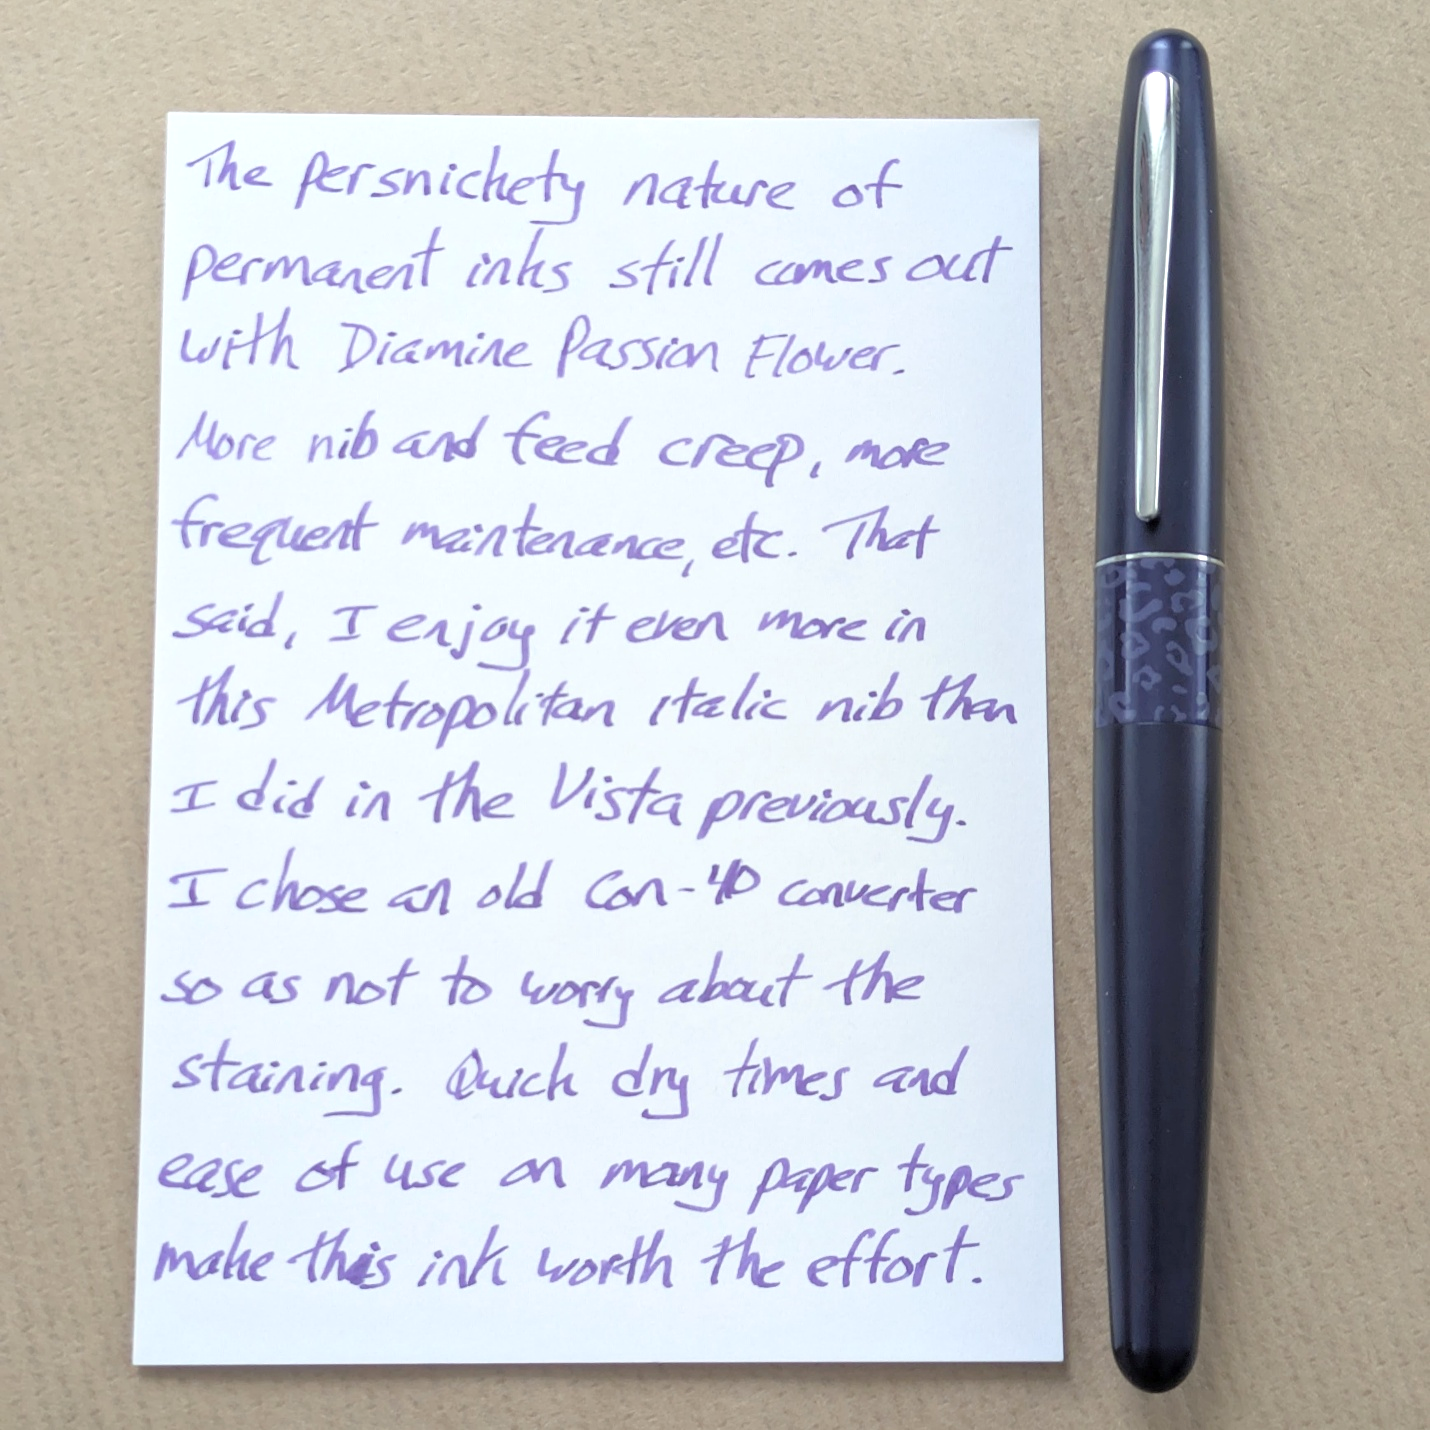 The persnickety nature of
permanent inks still comes out
with Diamine Passion Flower.
More nib and feed creep, more
frequent maintenance, etc. That
said, I enjoy it even more in
this Metropolitan italic nib than
I did in the Vista previously.
I chose an old Con-40 converter
so as not to worry about the
staining. Quick dry times and
ease of use on many paper types
make this ink worth the effort.